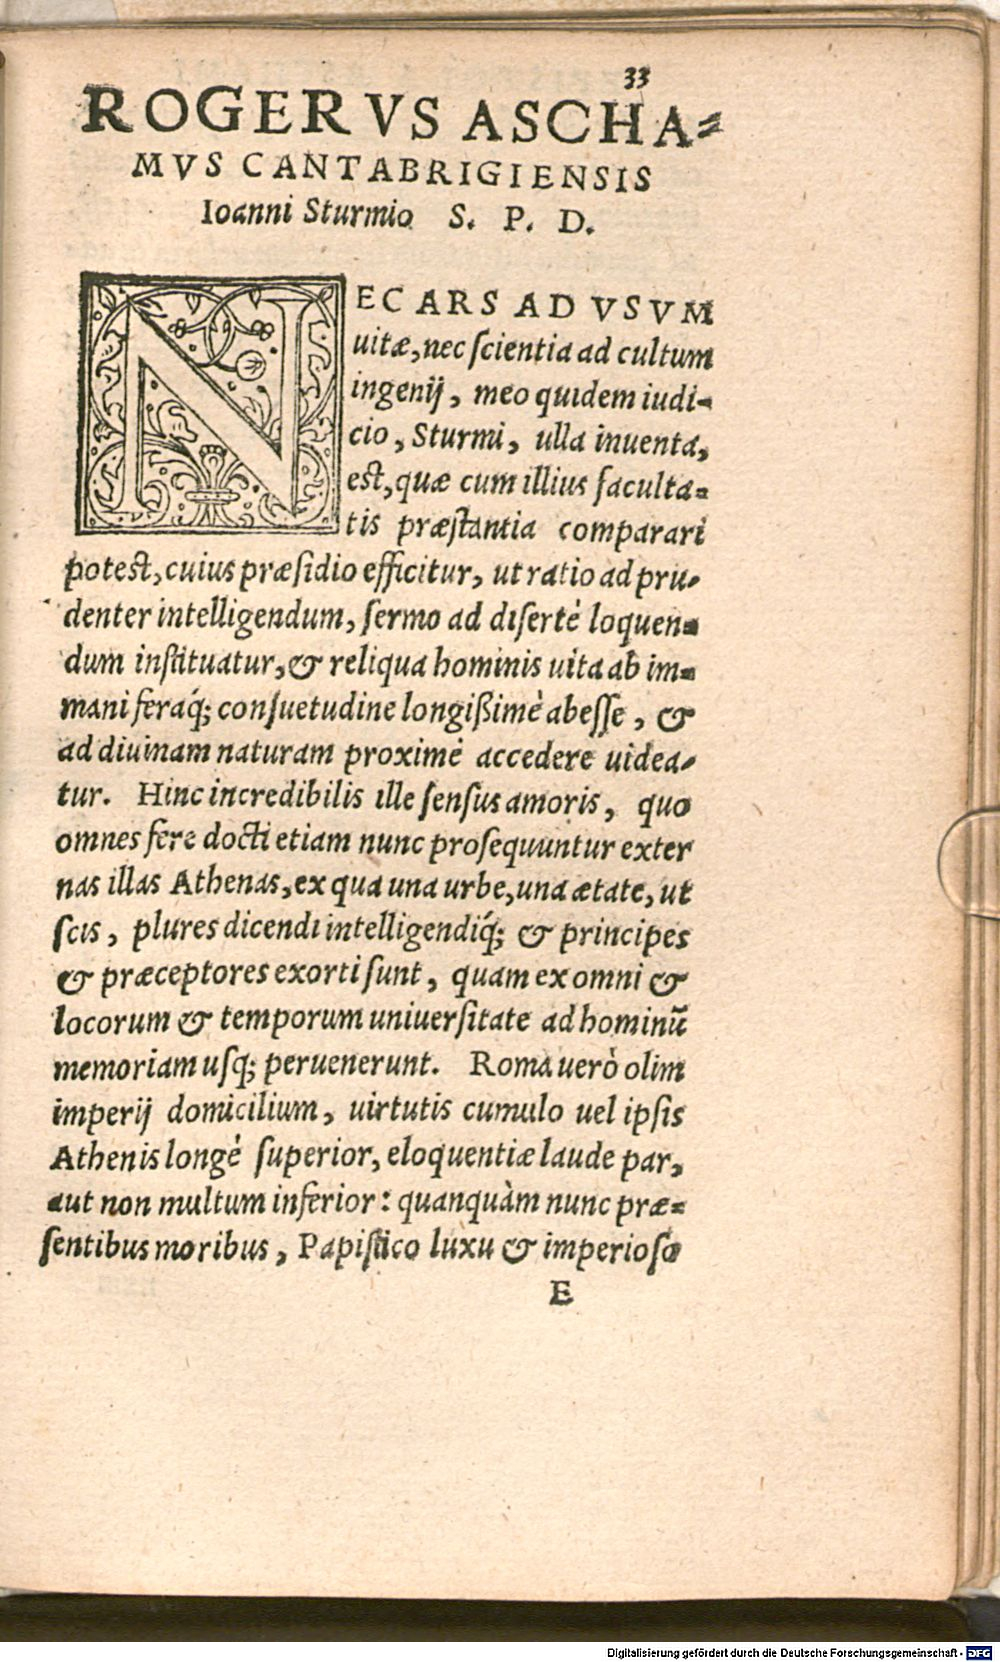 33
ROGERVS ASCHA-
MVS CANTABRIGIENSIS
Ioanni Sturmio S. P. D.
NEC ARS AD VSVM
uitæ, nec scientia ad cultum
ingenij, meo quidem iudi-
cio, Sturmi, ulla inuenta,
est, quæ cum illius faculta-
tis præstantia comparari
potest, cuius præsidio efficitur, ut ratio ad pru-
denter intelligendum, sermo ad disertè loquen-
dum instituatur, & reliqua hominis uita ab im-
mani feraq́; consuetudine longißimè abesse, &
ad diuinam naturam proximè accedere uidea-
tur. Hinc incredibilis ille sensus amoris, quo
omnes fere docti etiam nunc prosequuntur exter
nas illas Athenas, ex qua una urbe, una ætate, ut
scis, plures dicendi intelligendiq́; & principes
& præceptores exorti sunt, quam ex omni &
locorum & temporum uniuersitate ad hominũ
memoriam usq; peruenerunt. Roma uerò olim
imperij domicilium, uirtutis cumulo uel ipsis
Athenis longè superior, eloquentiæ laude par,
aut non multum inferior: quanquàm nunc præ-
sentibus moribus, Papistico luxu & imperioso
E
Digitalisierung gefördert durch die Deutsche Forschungsgemeinschaft - DFG